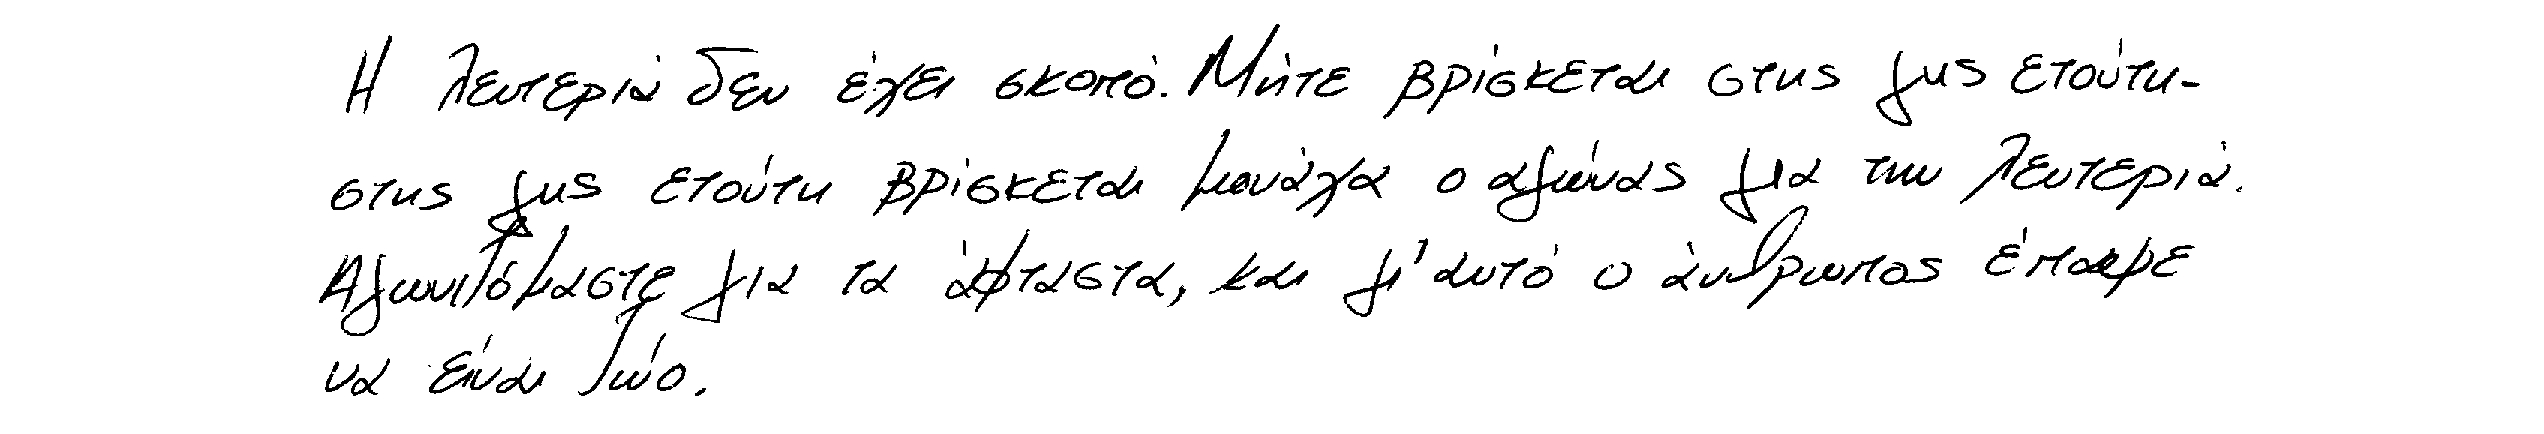 Η λευτεριά δεν έχει σκοπό. Μήτε βρίσκεται στης γης ετούτη-
στης γης ετούτη βρίσκεται μονάχα ο αγώνας για την λευτεριά.
Αγωνιζόμαστε για τα άφταστα, και γι' αυτό ο άνθρωπος έπαψε
να είναι ζώο.